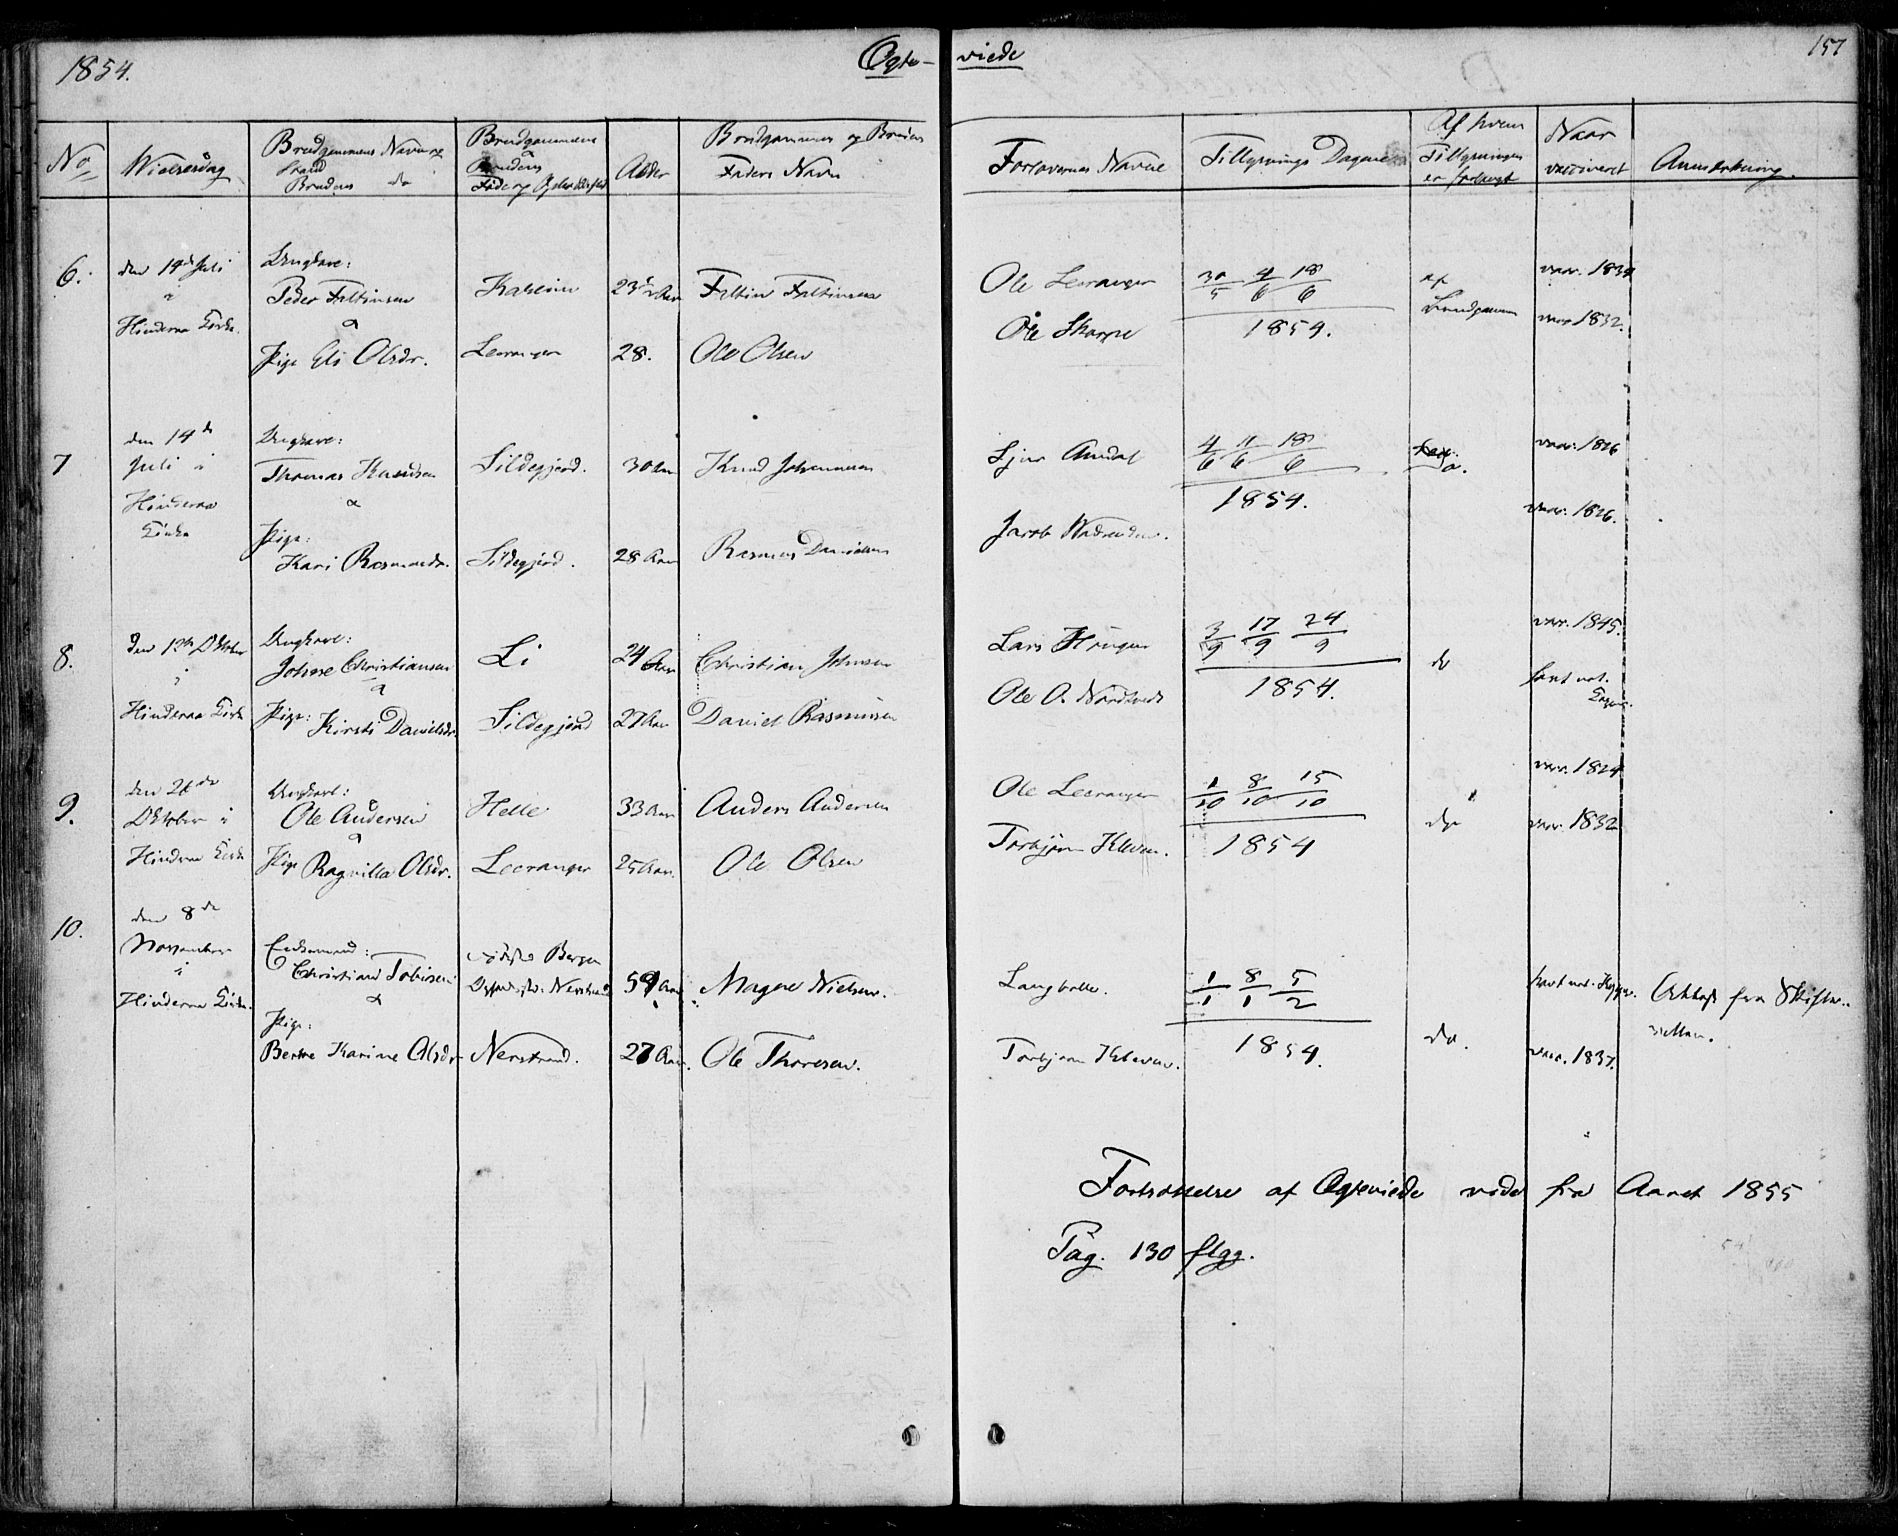 1854.
Egte- viede
157
No
Vielsesdag
Brudgommens Navn og
Stand
Brudens do
Brudgommens
Brudens
Fødeog Opholdssted
Alder
Brudgommens og Brudens
Faders Navn
Forlovernes Navne
Tillysnings Dagene
Af hvem
Tillysningen
er forlangt
Naar
vaccineret
Anmærkning.
6.
den 14de Juli
i
Hinderaa Kirke.
Ungkarl:
Peder Faltinsen
&
Pige Eli Olsdr.
Leeranger
23½ Aar
28.
Faltin Faltinsen
Ole Olsen
Ole Leeranger
Ole Skarpe
30/5 4/6 18/6
1854.
af
Brudgommen
vacc. 1834
vacc. 1832.
7
den 14de
Juli i
Hinderaa
Kirke
Ungkarl:
Thomas Knudsen
&
Pige:
Kari Rasmusdr.
Sildegjerd.
Sildegjerd.
30 Aar
28 Aar
Knud Johannesen
Rasmus Danielsen
Sjur Amdal
Jacob
4/6 11/6 18/6
1854.
do.
vacc: 1826
vacc: 1826.
8.
den 12te Oktober
i
Hinderaa Kirke
Ungkarl:
Johne Christiansen
&
Pige: Kirsti Danielsdr.
Li
Sildegjerd
24 Aar
27 Aar
Christian Johnsen
Daniel Rasmussen
Lars Haugen
Ole O. Nordtvedt
3/9 17/9 24/9
1854.
do
vacc. 1845.
havt nat.
Kopper.
9.
den 26de
Oktober i
Hinderaa Kirke
Ungkarl:
Ole Andersen
&
Pige Ragnilla Olsdr.
Helle
Leeranger
33 Aar
25 Aar.
Anders Andersen
Ole Olsen
Ole Leeranger
Torbjørn Kleven.
1/10 8/10 15/10
1854
do
vacc. 1824
vacc. 1832
10.
den 8de
November
i
Hinderaa Kirke.
Enkemand:
Christian Tobiesen
&
Pige:
Berthe Karine Olsdr
Fødested Bergen
Opholdsst: Nerstrand
Nerstrand.
59 Aar
27 Aar.
Magne Nielsen.
Ole Thoresen.
Langballe.
Torbjørn Kleven.
1/1 8/1 5/2
1854.
do.
havt nat. Kopper.
vacc. 1837.
Attest fra Skifteretten.
Fortsættelse af Egteviede vides fra Aaret 1855
Pag. 130 flgg.